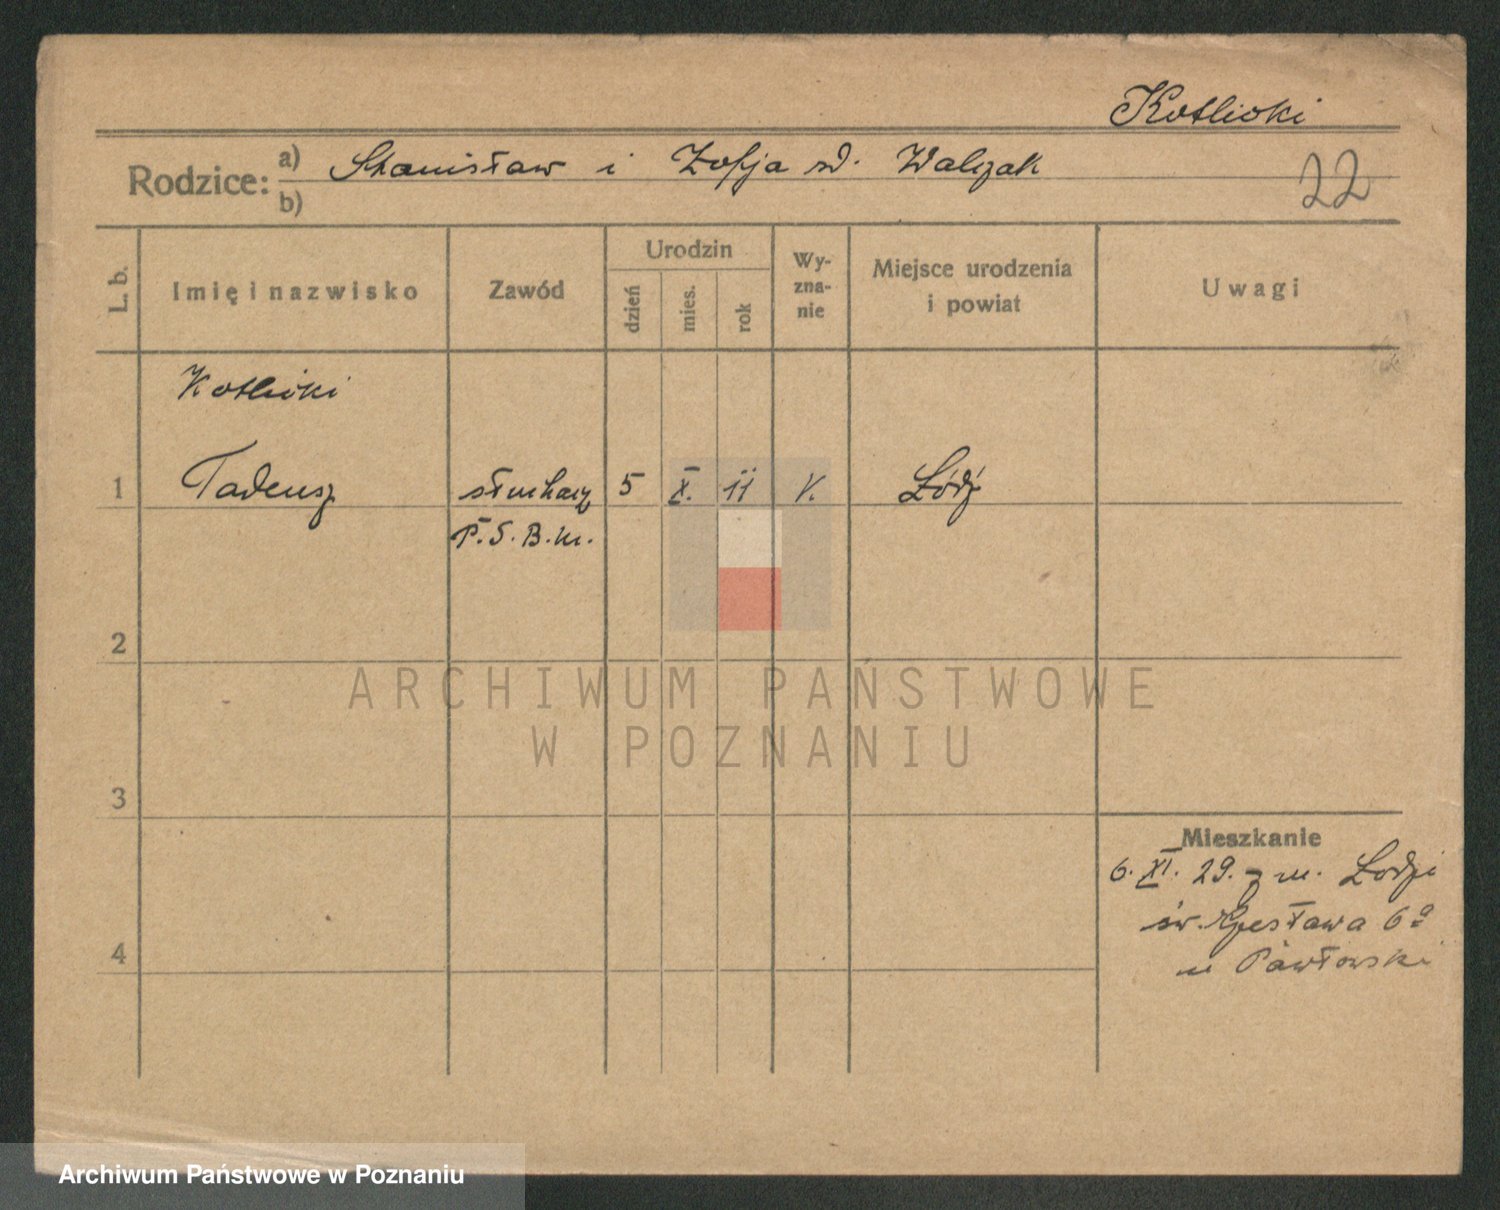 Kotlicki
Rodzice: a) Stanisław i Zofja zd. Walczak
b)
22
L. b. Imię i nazwisko Zawód Urodzin Wy-zna-nie Miejsce urodzenia i powiat Uwagi
dzień mies. rok
Kotlicki
1 Tadeusz słuchacz 5 X. 11 Łódź
P.S.B.m.
2
ARCHIWUM PAŃSTWOWE
W POZNANIU
3
Mieszkanie
6. XI. 29. z m. Łodzi
św. 6a
4 u Pawłowski
Archiwum Państwowe w Poznaniu